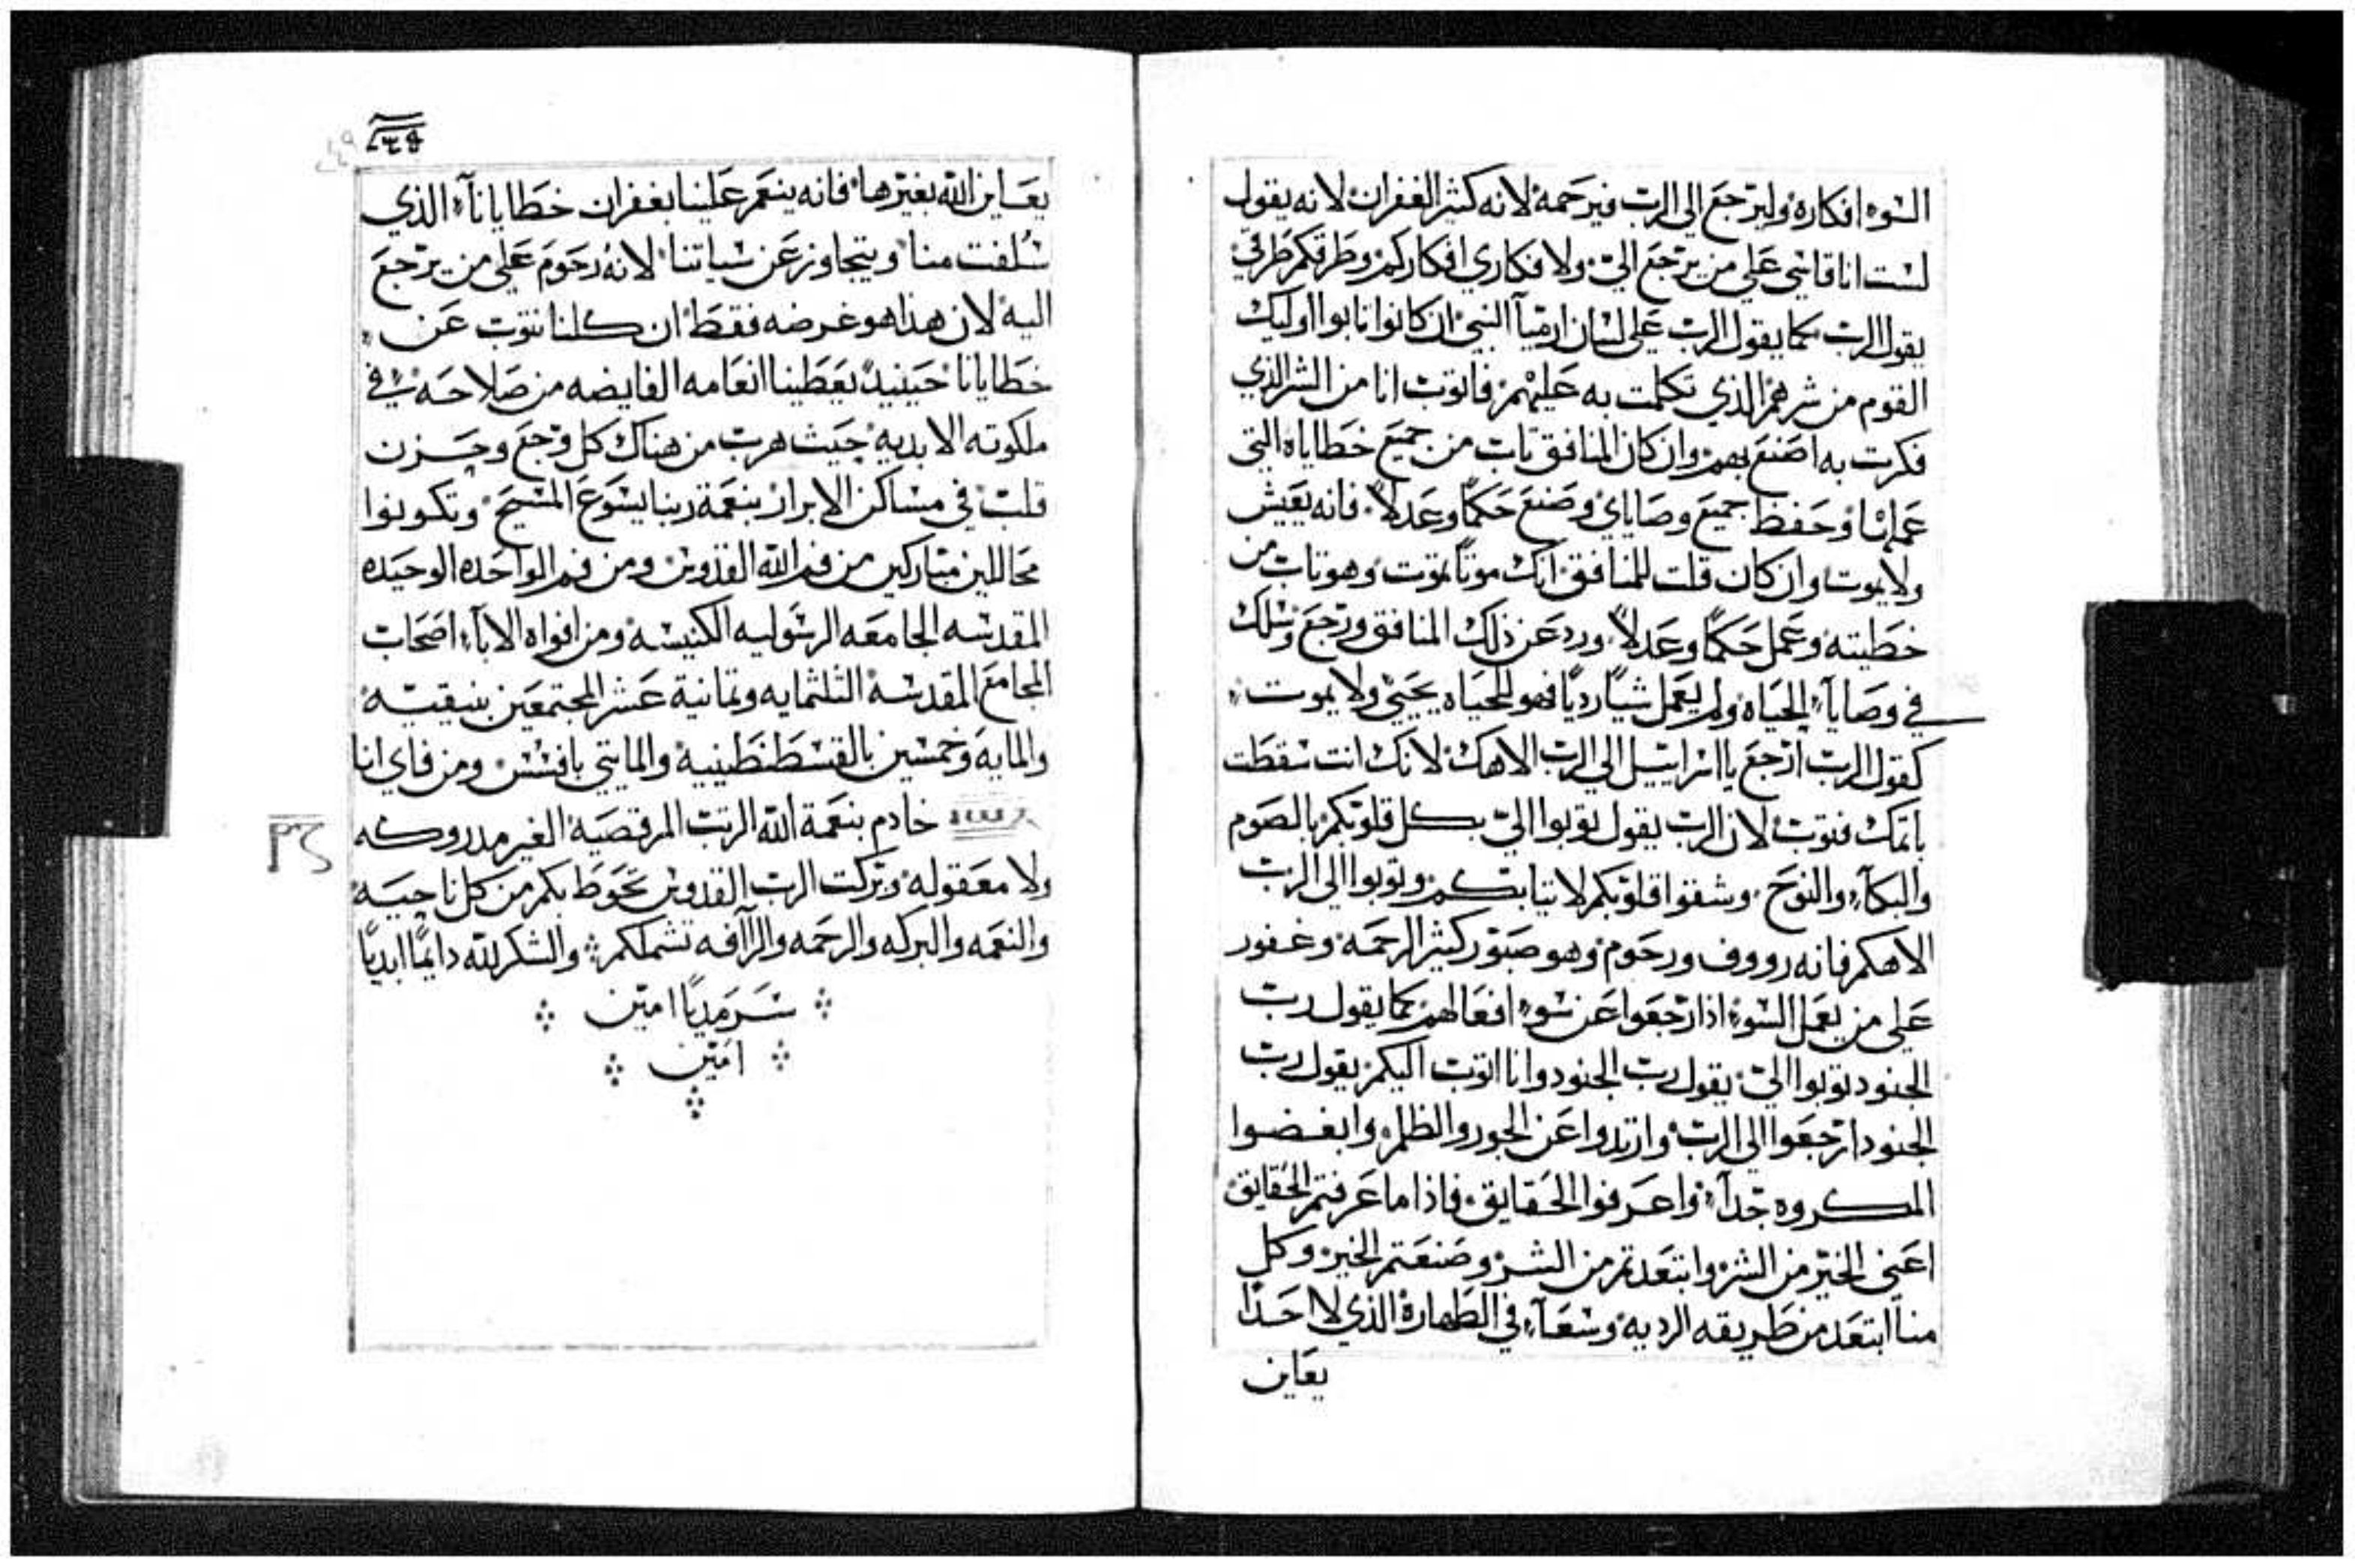 السوء افكاره وليرجع الى الرب فيرحمه لانه كثير الغفران لانه يقول
لست انا قاسي على من يرجع الي ولا فكاري افكاركم وطرقكم طرقي
يقول الرب كما يقول الرب على لسان ارميآ النبي ان كانوا تابوا اوليك
القوم من شرهم الذي تكلمت به عليهم فاتوب انا من الشر الذي
فكرت به اصنع بهم وان كان المنافق تاب من جميع خطاياه التي
عملها وحفظ جميع وصاياي وصنع حكمًا وعدلاً فانه يعيش
ولا يموت وان كان قلت للمنافق انك موتًا تموت وهو تاب من
خطيته وعمل حكمًا وعدلاً ورد عن ذلك المنافق ورجع وسلك
في وصايآء الحياه ولم يعمل شيًا رديًا فهو للحياه يحيي ولا يموت
كقول الرب ارجع يا اسراييل الي الرب الاهك لانك انت سقطت
باثمك فتوب لان الرب يقول توبوا الي بكل قلوبكم بالصوم
والبكآء والنوح وشقوا قلوبكم لا تيابكم وتوبوا الي الرب
الاهكم فانه رووف ورحوم وهو صبور كثير الرحمه وغفور
على من يعمل السوء اذا رجعوا عن سوء افعالهم كما يقول رب
الجنود توبوا الي يقول رب الجنود وانا اتوب اليكم يقول رب
الجنود ارجعوا الي الرب وارتدوا عن الجور والظلم وابغضوا
المكروه جدآ واعرفوا الحقايق فاذا ما عرفتم الحقايق
اعني الخير من الشر وابتعدتم من الشر وصنعتم الخير وكل
منا ابتعد من طريقه الرديه وسعآء في الطهارة الذي لا احدًا
يعاين
يعاين الله بغيرها فانه ينعم علينا بغفران خطايانآء الذي
سلفت منا ويتجاوز عن سياتنا لانه رحوم على من يرجع
اليه لان هذا هو غرضه فقط ان كلنا نتوب عن
خطايانا حينيدً يعطينا انعامه الفايضه من صلاحه في
ملكوته الابديه حيث هرب من هناك كل وجع وحزن
قلب في مساكن الابرار بنعمة ربنا يسوع المسيح وتكونوا
محاللين مباركين من فم الله القدوس ومن فم الواحده الوحيده
المقدسه الجامعه الرسوليه الكنيسه ومن افواه الابآء اصحاب
المجامع المقدسه الثلثمايه وتمانية عشر المجتمعين بنيقيه
والمايه وخمسين بالقسطنطينيه والمايتي بافسس ومن فاي انا
خادم بنعمة الله الرتب المرقصيه الغير مدروكه
ولا معقوله وبركت الرب القدوس تحوط بكم من كل ناحيه
والنعمه والبركه والرحمه والرآافه تشملكم والشكر لله دايمًا ابديًا
سرمديًا امين
امين